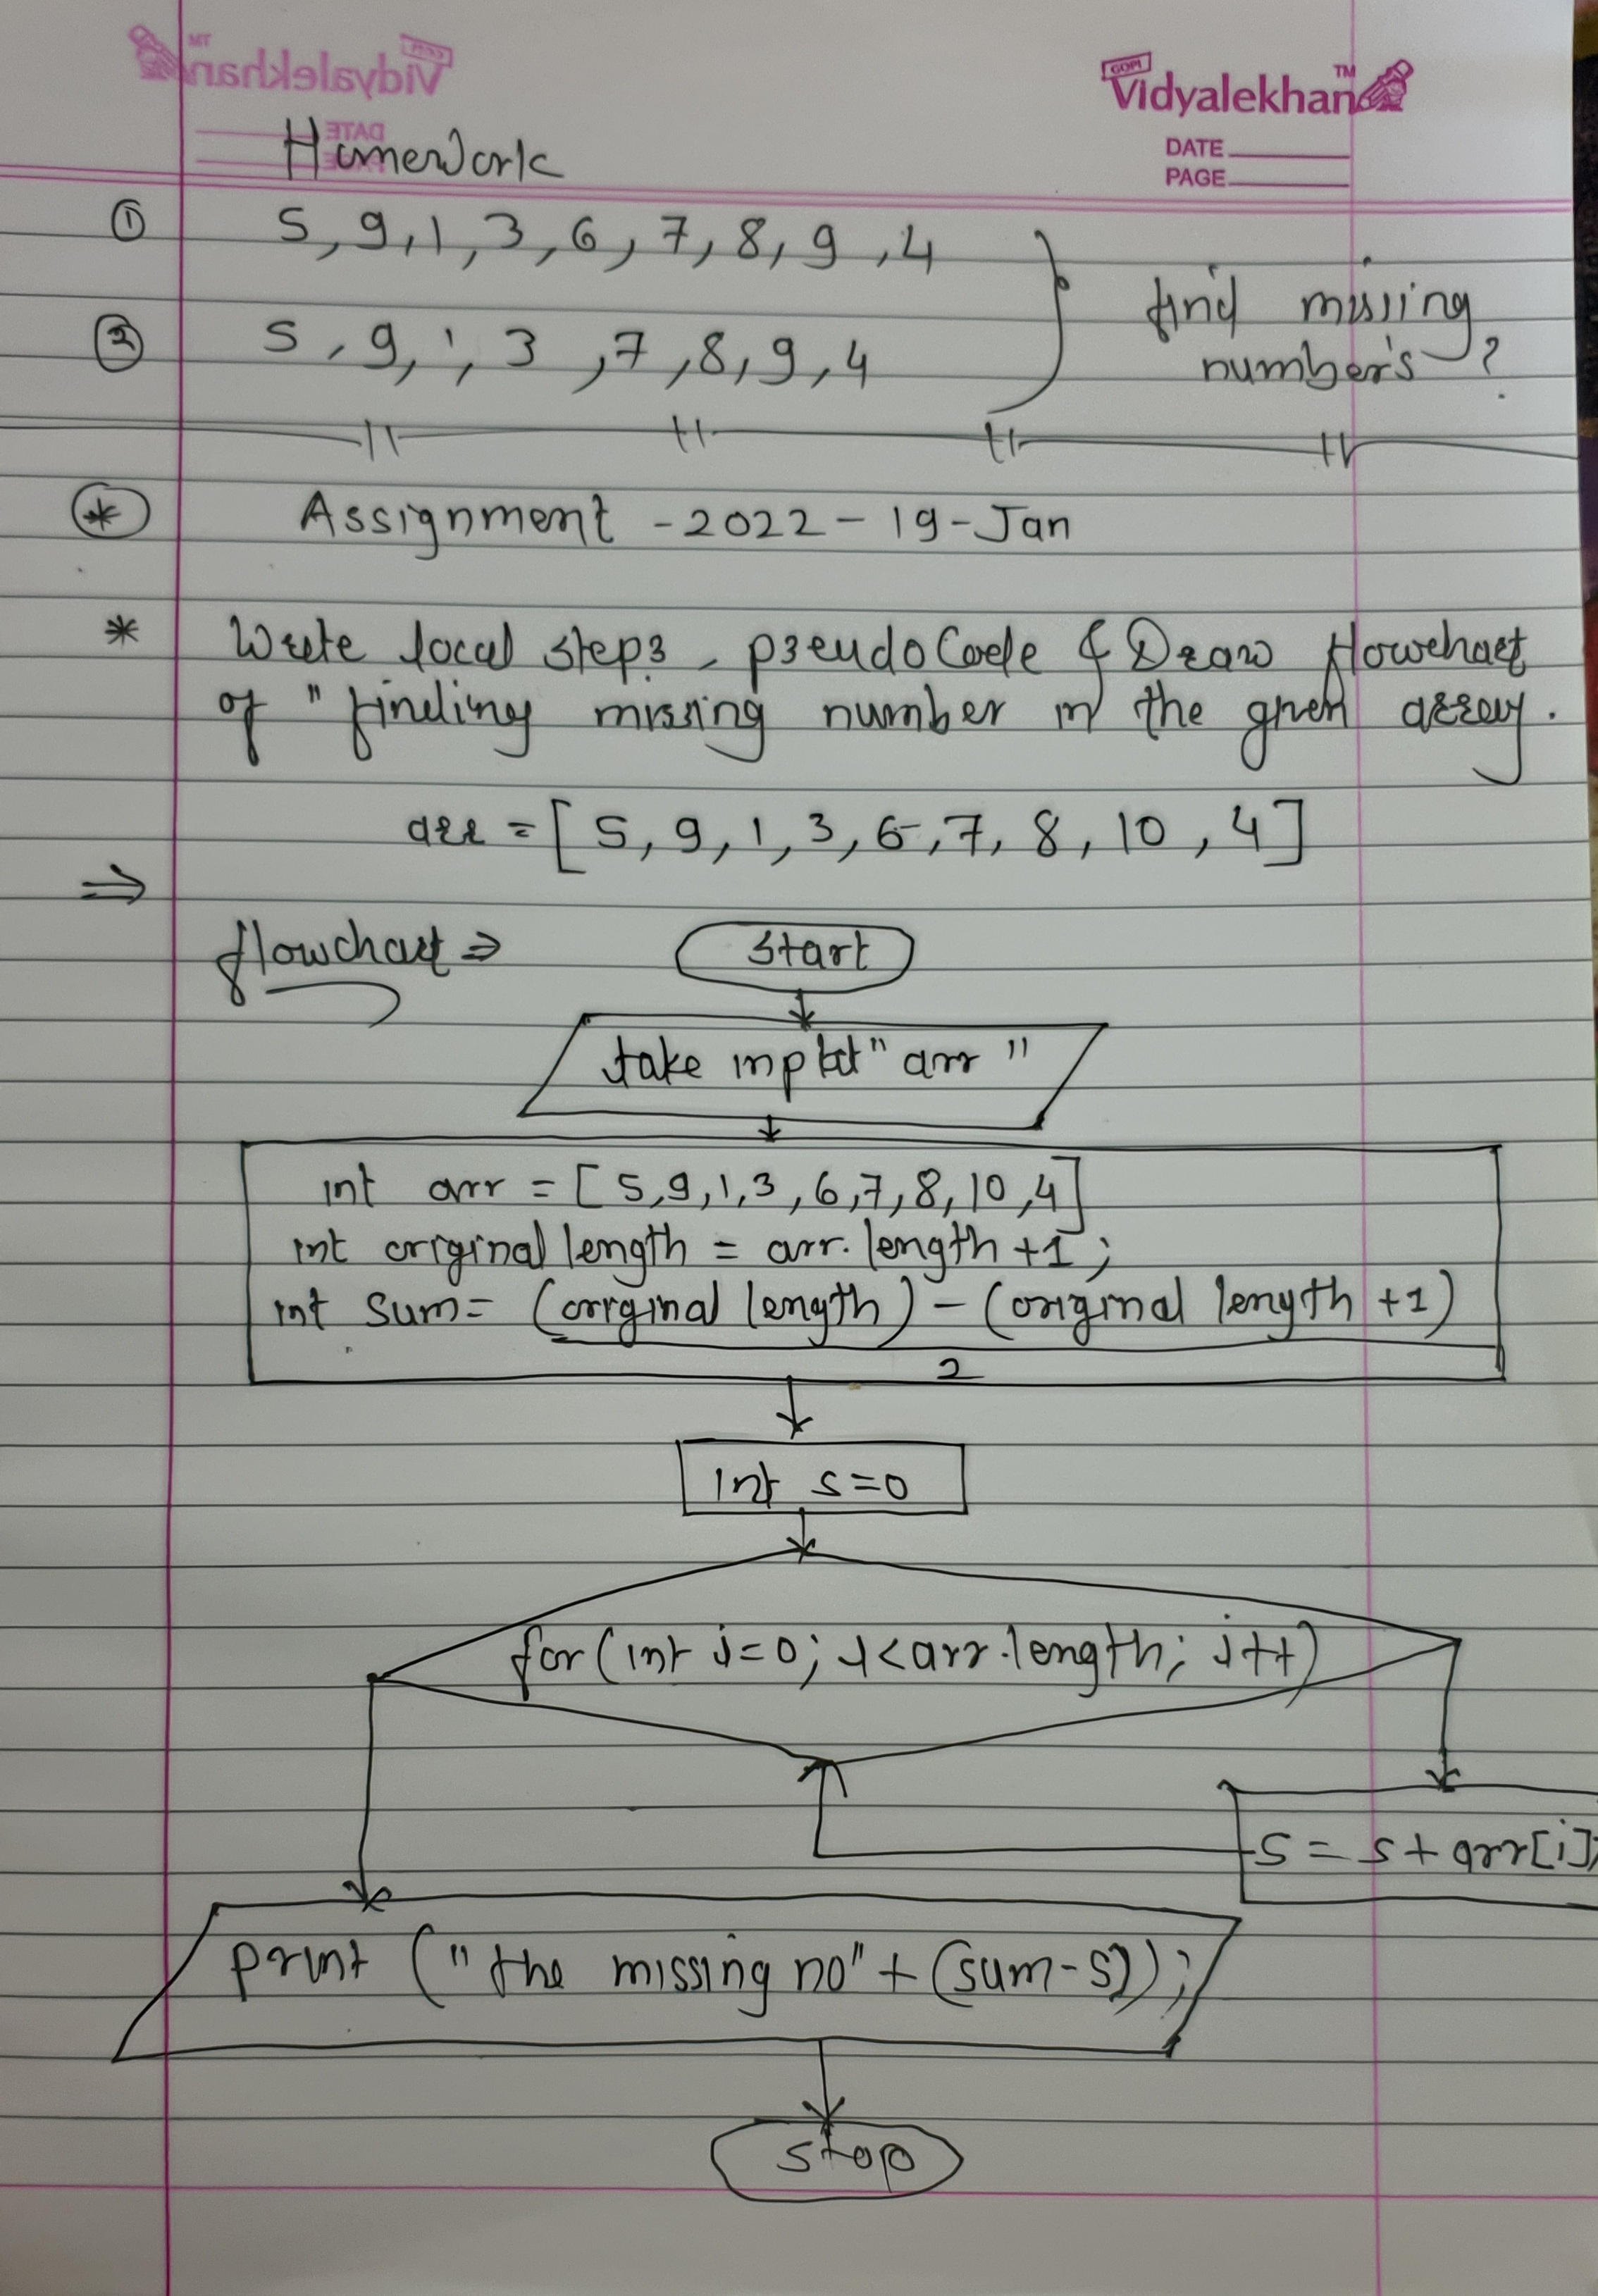 GOPI
Vidyalekhan™
DATE
PAGE
HomeWork
① 5, 9, 1, 3, 6, 7, 8, 9, 4
② 5, 9, 1, 3, 7, 8, 9, 4
find missing
number's ?
* Assignment - 2022 - 19 - Jan
* Write local steps, pseudo Code & Draw flowchart
of " finding missing number in the given array.
arr = [ 5, 9, 1, 3, 6, 7, 8, 10, 4 ]
⇒
flowchart ⇒
start
take input " arr "
int arr = [ 5, 9, 1, 3, 6, 7, 8, 10, 4 ]
int original length = arr. length + 1 ;
int sum = (original length) - (original length + 1)
2
int s = 0
for (int i = 0; i < arr.length; i++)
s = s + arr[i];
print (" the missing no" + (sum - s));
stop